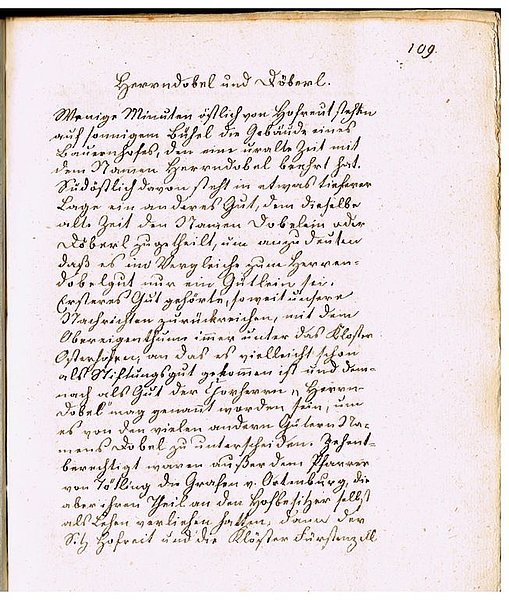 109.
Herrndobel und Döberl.
Wenige Minuten östlich von Hofreut stehen
auf sonnigem Bühel die Gebäude eines
Bauernhofes, den eine uralte Zeit mit
dem Namen Herrndobel beehrt hat.
Südöstlich davon steht in etwas tieferer
Lage ein anderes Gut, dem dieselbe
alte Zeit den Namen Dobelein oder
Döberl zugetheilt, um anzudeuten
daß es im Vergleiche zum Herren-
dobelgut nur ein Gütlein sei.
Ersteres Gut gehörte, soweit unsere
Nachrichten zurückreichen, mit dem
Obereigenthum immer unter das Kloster
Osterhofen, an das es vielleicht schon
als Stiftungsgut gekommen ist und dem-
nach als Gut der Chorherrn „Herrn-
dobel" mag genannt worden sein, um
es von den vielen andern Gütern Na-
mens Dobel zu unterscheiden. Zehent-
berechtigt waren außer dem Pfarrer
von die Grafen v. Ortenburg, die
aber ihren Theil an den Hofbesitzer selbst
als Lehen verliehen hatten, dann der
Sitz Hofreit und die Klöster Fürstenzell